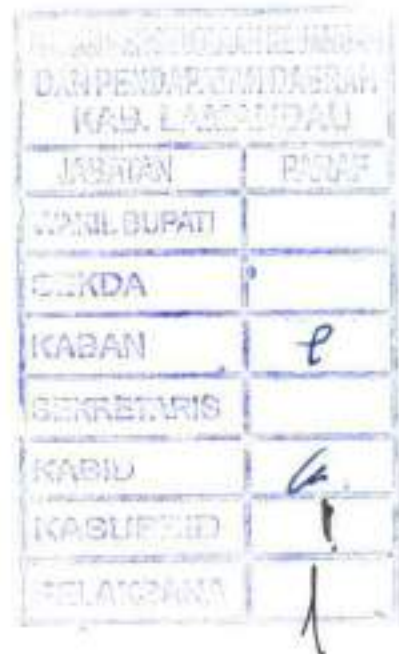 DAN PENDAPATAN DAERAH
KAB. LAMANDAU
JABATAN PARAF
WAKIL BUPATI
SEKDA
KABAN
SEKRETARIS
KABID
KASUBBID
PELAKSANA